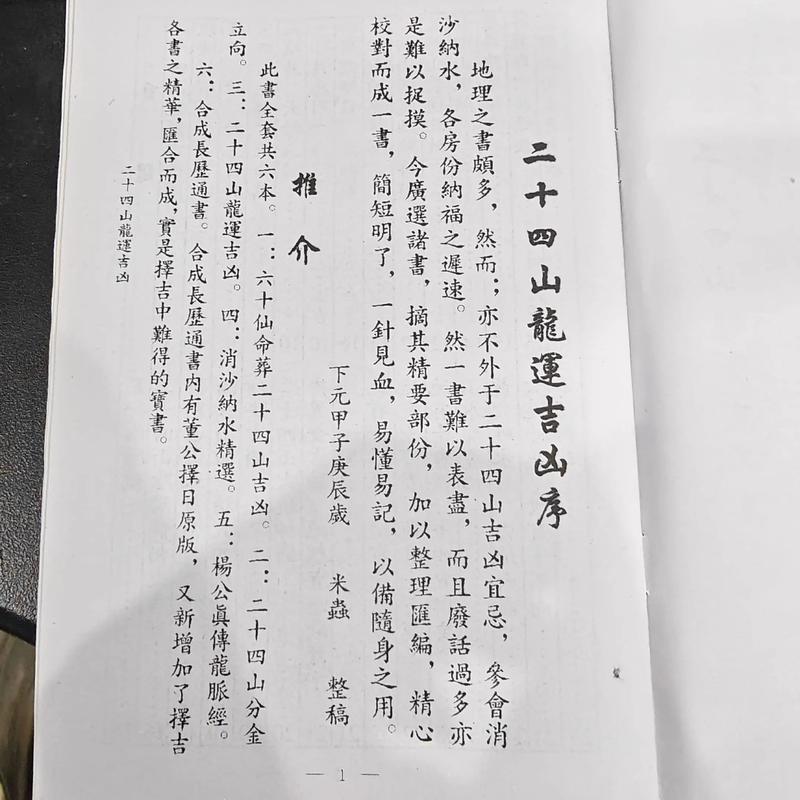 二十四山龍運吉凶序
地理之書頗多，然而；亦不外于二十四山吉凶宜忌，參會消
沙納水，各房份納福之遲速。然一書難以表盡，而且廢話過多亦
是難以捉摸。今廣選諸書，摘其精要部份，加以整理匯編，精心
校對而成一書，簡短明了，一針見血，易懂易記，以備隨身之用。
下元甲子庚辰歲 米蟲 整稿
推介
此書全套共六本。一：六十仙命葬二十四山吉凶。二：二十四山分金
立向。三：二十四山龍運吉凶。四：消沙納水精選。五：楊公眞傳龍脈經。
六：合成長歷通書。合成長歷通書內有董公擇日原版，又新增加了擇吉
各書之精華，匯合而成，實是擇吉中難得的寶書。
二十四山龍運吉凶
— 1 —